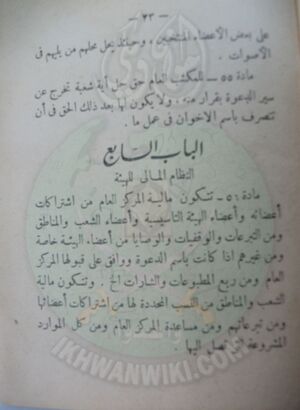 — ٢٣ —
على بعض الأعضاء المنتخبين ، وحينئذ يحل محلهم من يليهم فى
الأصوات .
مادة ٥٥ – للمكتب العام حق حل أية شعبة تخرج عن
سير الدعوة بقرار منه ، ولا يكون لها بعد ذلك الحق فى أن
تتصرف باسم الاخوان فى عمل ما .
الباب السابع
النظام المالى للهيئة
مادة ٥٦ – تتكون مالية المركز العام من اشتراكات
أعضائه وأعضاء الهيئة التأسيسية وأعضاء الشعب والمناطق
ومن التبرعات والوقفيات والوصايا من أعضاء الهيئة خاصة
ومن غيرهم اذا كانت باسم الدعوة ووافق على قبولها المركز
العام ومن ريع المطبوعات والشارات الخ . وتتكون مالية
الشعب والمناطق من النسب المحددة لها من اشتراكات أعضائها
ومن تبرعاتهم ومن مساعدة المركز العام ومن كل الموارد
المشروعة التى تصل اليها .
IKHWANWIKI.COM